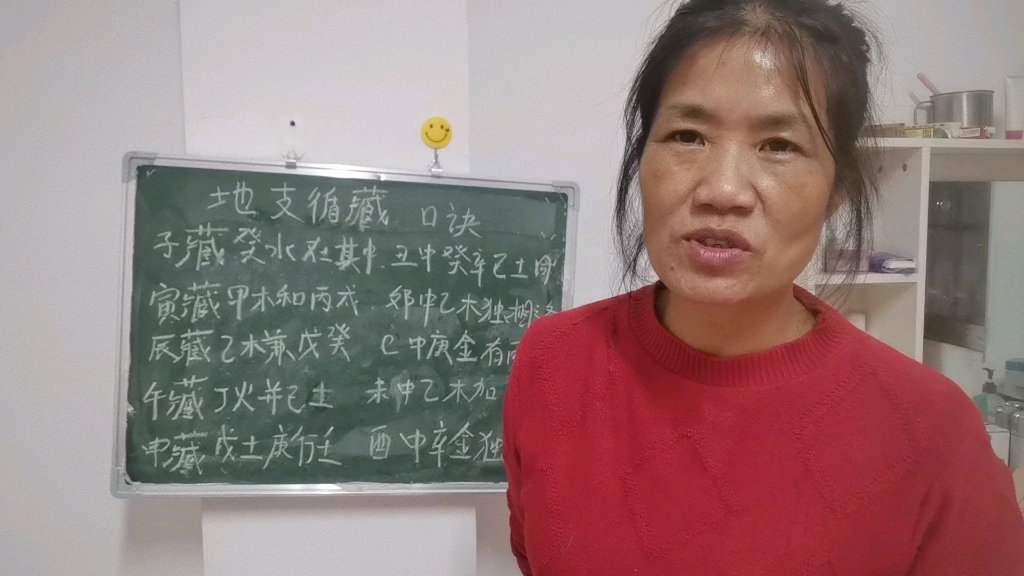 地支循藏 口诀
子藏癸水在其中 丑中癸辛己土同
寅藏甲木和丙戊 卯中乙木独
辰藏乙木兼戊癸 巳中庚金有
午藏丁火并己土 未中乙木
申藏戊土庚行壬 酉中辛金独